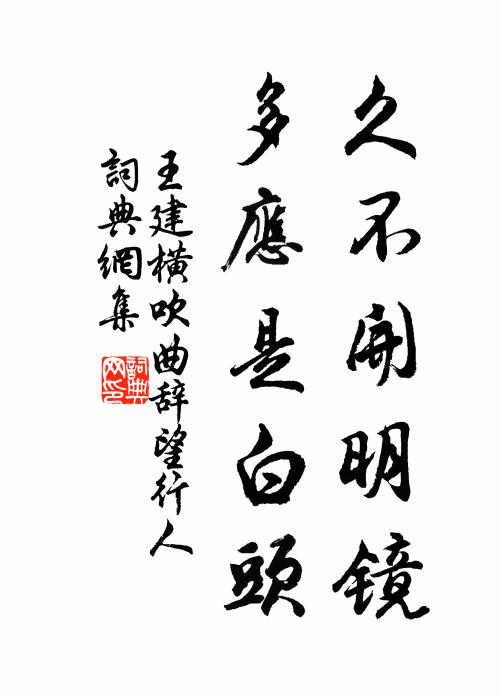 久不開明镜
多應是白頭
王建橫吹曲辞望行人
詞典網集
詞典
网印